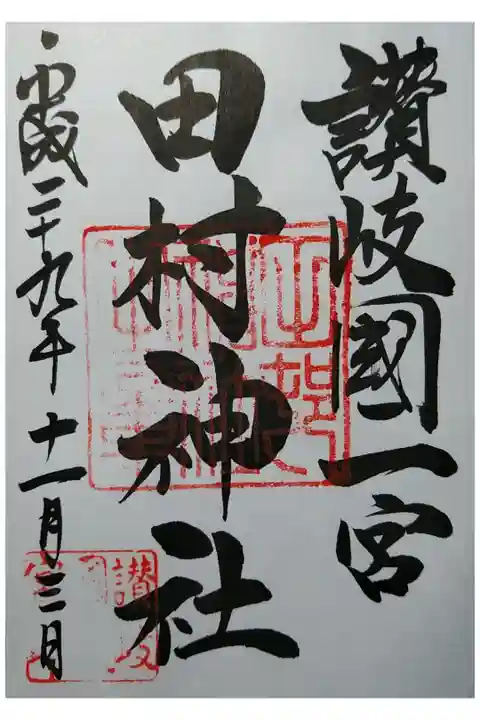 讃岐國一宮
田村神社
平成二十九年十一月三日